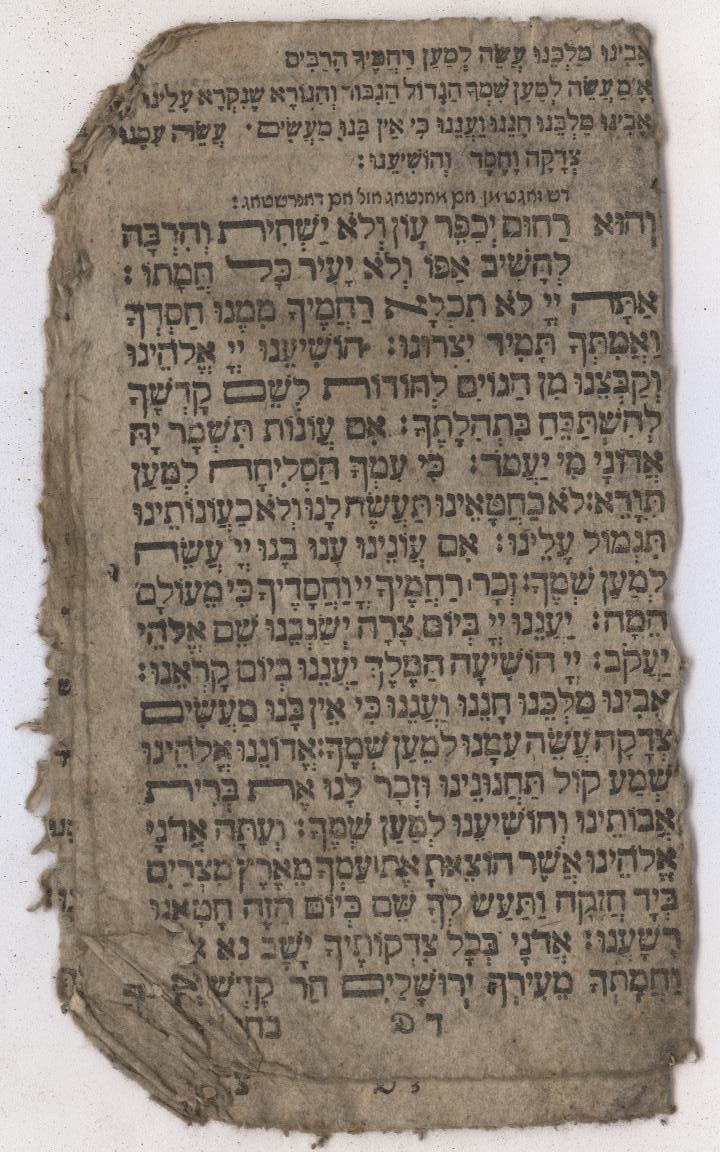 אָבִינוּ מַלְכֵּנוּ עֲשֵׂה לְמַעַן רַחֲמֶיךָ הָרַבִּים
א֞מ֞ עֲשֵׂה לְמַעַן שִׁמְךָ הַגָּדוֹל הַגִּבּוֹר וְהַנּוֹרָא שֶׁנִּקְרָא עָלֵינוּ
אָבִינוּ מַלְכֵּנוּ חָנֵּנוּ וַעֲנֵנוּ כִּי אֵין בָּנוּ מַעֲשִׂים׃ עֲשֵׂה עִמָּנוּ
צְדָקָה וָחֶסֶד וְהוֹשִׁיעֵנוּ׃
דש זאגט מן אם מאנטאג אונ אם דאנרשטאג׃
וְהוּא רַחוּם יְכַפֵּר עָוֹן וְלֹא יַשְׁחִית וְהִרְבָּה
לְהָשִׁיב אַפּוֹ וְלֹא יָעִיר כָּל חֲמָתוֹ׃
אַתָּה יְיָ לֹא תִכְלָא רַחֲמֶיךָ מִמֶּנּוּ חַסְדְּךָ
וַאֲמִתְּךָ תָּמִיד יִצְּרוּנוּ׃ הוֹשִׁיעֵנוּ יְיָ אֱלֹהֵינוּ
וְקַבְּצֵנוּ מִן הַגּוֹיִם לְהוֹדוֹת לְשֵׁם קָדְשֶׁךָ
לְהִשְׁתַּבֵּחַ בִּתְהִלָּתֶךָ׃ אִם עֲוֹנוֹת תִּשְׁמָר יָהּ
אֲדוֹנָי מִי יַעֲמֹד׃ כִּי עִמְּךָ הַסְּלִיחָה לְמַעַן
תִּוָּרֵא׃ לֹא כַחֲטָאֵינוּ תַּעֲשֶׂה לָנוּ וְלֹא כַעֲוֹנוֹתֵינוּ
תִּגְמוֹל עָלֵינוּ׃ אִם עֲוֹנֵינוּ עָנוּ בָנוּ יְיָ עֲשֵׂה
לְמַעַן שְׁמֶךָ׃ זְכָר רַחֲמֶיךָ יְיָ וַחֲסָדֶיךָ כִּי מֵעוֹלָם
הֵמָּה׃ יַעֲנֵנוּ יְיָ בְּיוֹם צָרָה יְשַׂגְּבֵנוּ שֵׁם אֱלֹהֵי
יַעֲקֹב׃ יְיָ הוֹשִׁיעָה הַמֶּלֶךְ יַעֲנֵנוּ בְיוֹם קָרְאֵנוּ׃
אָבִינוּ מַלְכֵּנוּ חָנֵּנוּ וַעֲנֵנוּ כִּי אֵין בָּנוּ מַעֲשִׂים
צְדָקָה עֲשֵׂה עִמָּנוּ לְמַעַן שְׁמֶךָ׃ אֲדוֹנֵנוּ אֱלֹהֵינוּ
שְׁמַע קוֹל תַּחֲנוּנֵינוּ וּזְכָר לָנוּ אֶת בְּרִית
אֲבוֹתֵינוּ וְהוֹשִׁיעֵנוּ לְמַעַן שְׁמֶךָ׃ וְעַתָּה אֲדֹנָי
אֱלֹהֵינוּ אֲשֶׁר הוֹצֵאתָ אֶת עַמְּךָ מֵאֶרֶץ מִצְרַיִם
בְּיָד חֲזָקָה וַתַּעַשׂ לְךָ שֵׁם כַּיּוֹם הַזֶּה חָטָאנוּ
רָשָׁעְנוּ׃ אֲדֹנָי בְּכָל צִדְקוֹתֶיךָ יָשָׁב נָא
וַחֲמָתְךָ מֵעִירְךָ יְרוּשָׁלַיִם הַר קָדְשֶׁךָ
ד פ